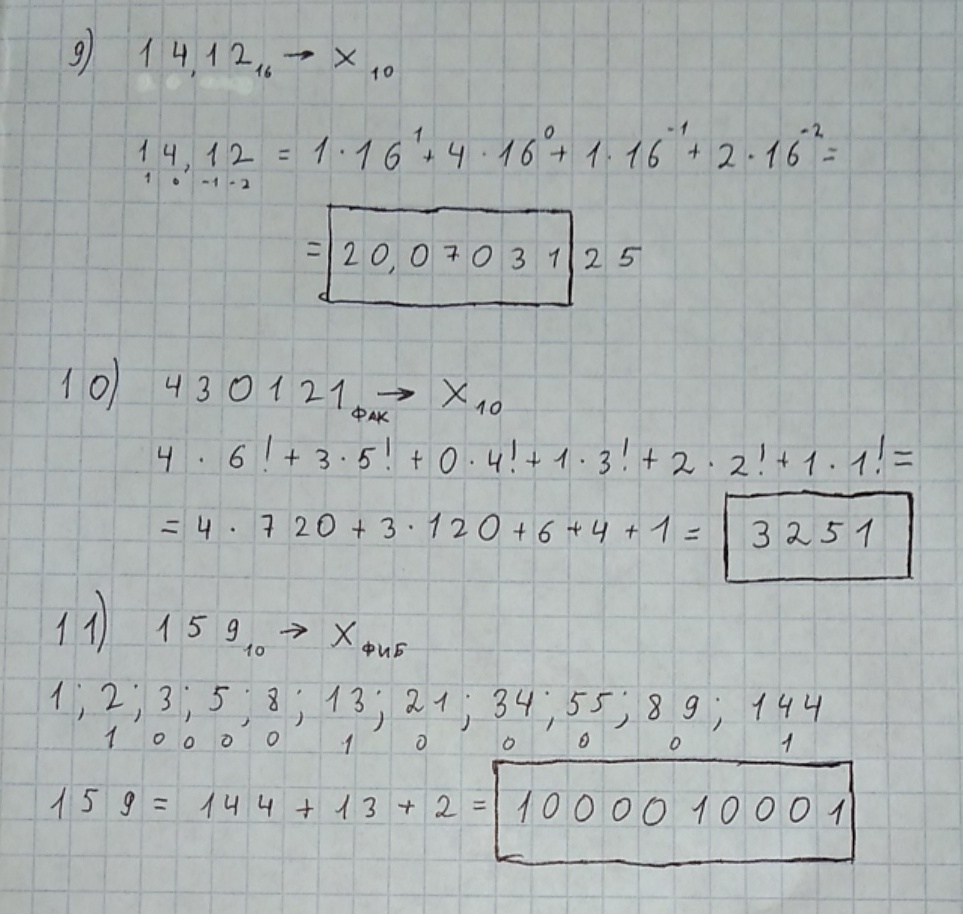 9) 14,12₁₆ → X₁₀
14,12 = 1·16¹ + 4·16⁰ + 1·16⁻¹ + 2·16⁻² =
1 0 -1 -2
= 20,0703125
10) 430121ФАК → X₁₀
4·6! + 3·5! + 0·4! + 1·3! + 2·2! + 1·1! =
= 4·720 + 3·120 + 6 + 4 + 1 = 3251
11) 159₁₀ → XФИБ
1; 2; 3; 5; 8; 13; 21; 34; 55; 89; 144
1 0 0 0 0 1 0 0 0 0 1
159 = 144 + 13 + 2 = 1000010001